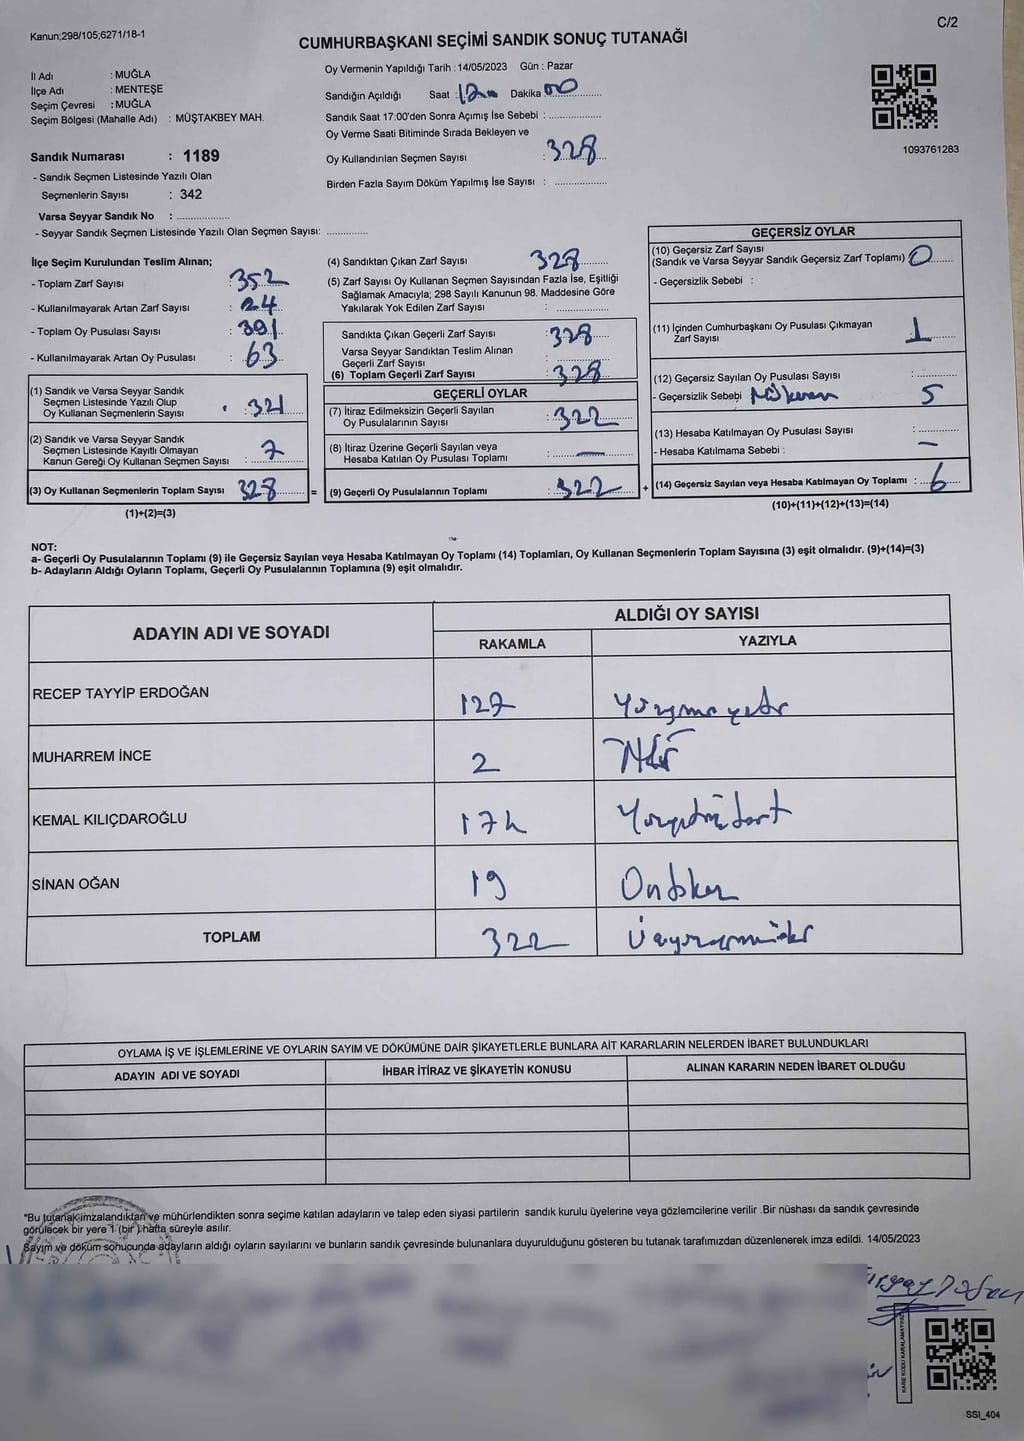 Kanun;298/105;6271/18-1
C/2
CUMHURBAŞKANI SEÇİMİ SANDIK SONUÇ TUTANAĞI
İl Adı : MUĞLA
İlçe Adı : MENTEŞE
Seçim Çevresi : MUĞLA
Seçim Bölgesi (Mahalle Adı) : MÜŞTAKBEY MAH.
Oy Vermenin Yapıldığı Tarih :14/05/2023 Gün : Pazar
Sandığın Açıldığı Saat : Dakika 00
Sandık Saat 17:00'den Sonra Açımış İse Sebebi :
Oy Verme Saati Bitiminde Sırada Bekleyen ve
Oy Kullandırılan Seçmen Sayısı : 328
Birden Fazla Sayım Döküm Yapılmış İse Sayısı :
1093761283
Sandık Numarası : 1189
- Sandık Seçmen Listesinde Yazılı Olan
Seçmenlerin Sayısı : 342
Varsa Seyyar Sandık No :
- Seyyar Sandık Seçmen Listesinde Yazılı Olan Seçmen Sayısı:
İlçe Seçim Kurulundan Teslim Alınan;
- Toplam Zarf Sayısı : 352
- Kullanılmayarak Artan Zarf Sayısı : 24
- Toplam Oy Pusulası Sayısı : 391
- Kullanılmayarak Artan Oy Pusulası : 63
(1) Sandık ve Varsa Seyyar Sandık
Seçmen Listesinde Yazılı Olup
Oy Kullanan Seçmenlerin Sayısı : 321
(2) Sandık ve Varsa Seyyar Sandık
Seçmen Listesinde Kayıtlı Olmayan
Kanun Gereği Oy Kullanan Seçmen Sayısı : 7
(3) Oy Kullanan Seçmenlerin Toplam Sayısı 328
(1)+(2)=(3)
(4) Sandıktan Çıkan Zarf Sayısı 328
(5) Zarf Sayısı Oy Kullanan Seçmen Sayısından Fazla İse, Eşitliği
Sağlamak Amacıyla; 298 Sayılı Kanunun 98. Maddesine Göre
Yakılarak Yok Edilen Zarf Sayısı :
Sandıkta Çıkan Geçerli Zarf Sayısı : 328
Varsa Seyyar Sandıktan Teslim Alınan
Geçerli Zarf Sayısı :
(6) Toplam Geçerli Zarf Sayısı 328
GEÇERLİ OYLAR
(7) İtiraz Edilmeksizin Geçerli Sayılan
Oy Pusulalarının Sayısı : 322
(8) İtiraz Üzerine Geçerli Sayılan veya
Hesaba Katılan Oy Pusulası Toplamı : —
= (9) Geçerli Oy Pusulalarının Toplamı : 322
GEÇERSİZ OYLAR
(10) Geçersiz Zarf Sayısı
(Sandık ve Varsa Seyyar Sandık Geçersiz Zarf Toplamı) 0
- Geçersizlik Sebebi :
(11) İçinden Cumhurbaşkanı Oy Pusulası Çıkmayan
Zarf Sayısı 1
(12) Geçersiz Sayılan Oy Pusulası Sayısı :
- Geçersizlik Sebebi 5
(13) Hesaba Katılmayan Oy Pusulası Sayısı :
- Hesaba Katılmama Sebebi : —
+ (14) Geçersiz Sayılan veya Hesaba Katılmayan Oy Toplamı : 6
(10)+(11)+(12)+(13)=(14)
NOT:
a- Geçerli Oy Pusulalarının Toplamı (9) ile Geçersiz Sayılan veya Hesaba Katılmayan Oy Toplamı (14) Toplamları, Oy Kullanan Seçmenlerin Toplam Sayısına (3) eşit olmalıdır. (9)+(14)=(3)
b- Adayların Aldığı Oyların Toplamı, Geçerli Oy Pusulalarının Toplamına (9) eşit olmalıdır.
ADAYIN ADI VE SOYADI
ALDIĞI OY SAYISI
RAKAMLA YAZIYLA
RECEP TAYYİP ERDOĞAN 127
MUHARREM İNCE 2
KEMAL KILIÇDAROĞLU 174
SİNAN OĞAN 19
TOPLAM 322
OYLAMA İŞ VE İŞLEMLERİNE VE OYLARIN SAYIM VE DÖKÜMÜNE DAİR ŞİKAYETLERLE BUNLARA AİT KARARLARIN NELERDEN İBARET BULUNDUKLARI
ADAYIN ADI VE SOYADI İHBAR İTİRAZ VE ŞİKAYETİN KONUSU ALINAN KARARIN NEDEN İBARET OLDUĞU
*Bu tutanak imzalandıktan ve mühürlendikten sonra seçime katılan adayların ve talep eden siyasi partilerin sandık kurulu üyelerine veya gözlemcilerine verilir .Bir nüshası da sandık çevresinde
görülecek bir yere 1 (bir ) hafta süreyle asılır.
Sayım ve döküm sonucunda adayların aldığı oyların sayılarını ve bunların sandık çevresinde bulunanlara duyurulduğunu gösteren bu tutanak tarafımızdan düzenlenerek imza edildi. 14/05/2023
KARE KODU KARALAMAYINIZ
SSI_404